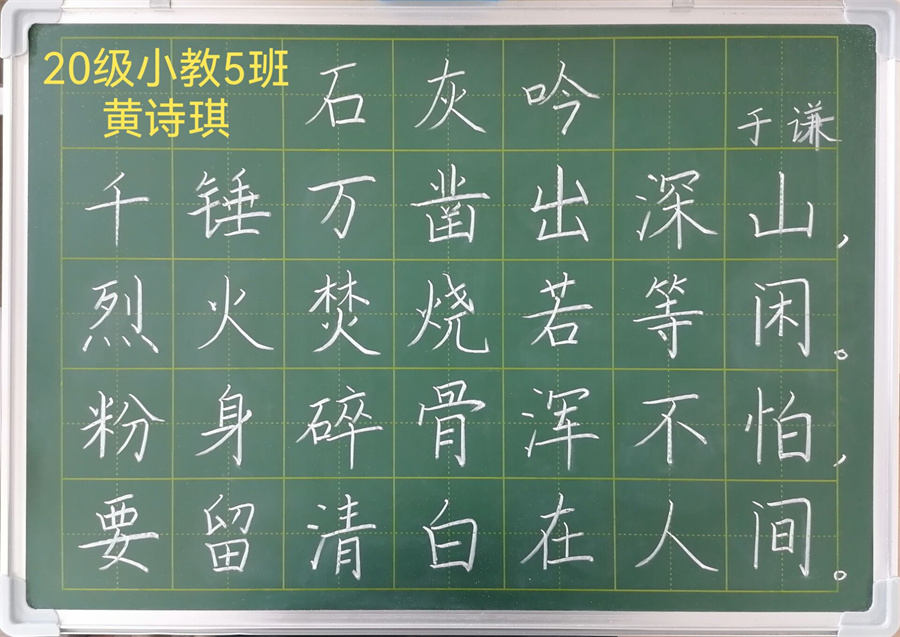 20级小教5班
黄诗琪
石灰吟
于谦
千锤万凿出深山,
烈火焚烧若等闲。
粉身碎骨浑不怕,
要留清白在人间。